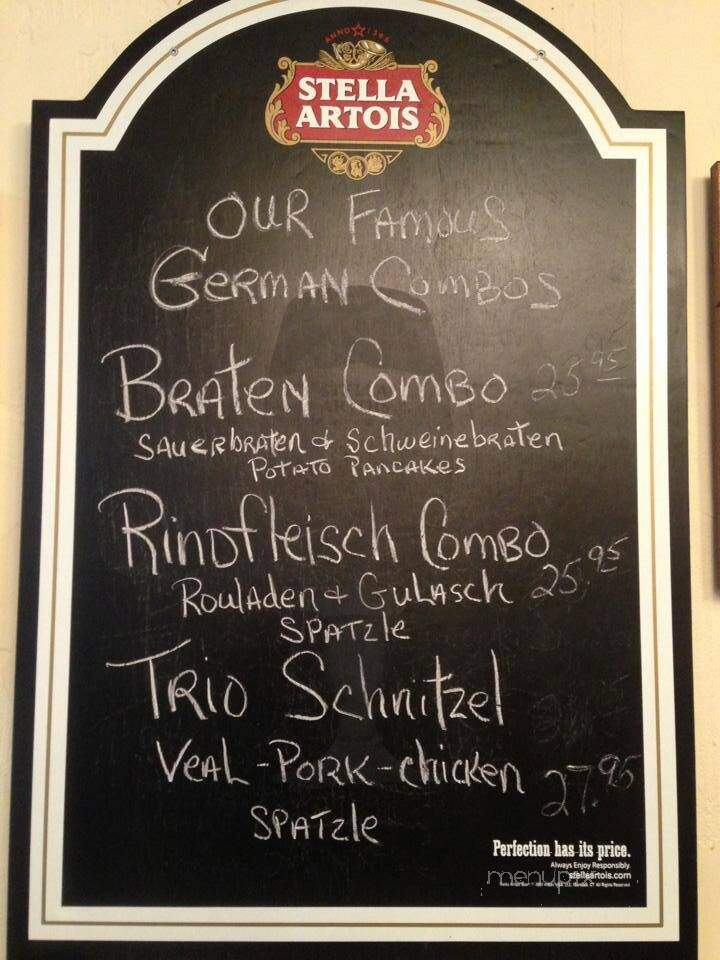 ANNO 1366
STELLA
ARTOIS
OUR FAMOUS
GERMAN COMBOS
BRATEN COMBO 25.95
SAUERBRATEN & SCHWEINEBRATEN
POTATO PANCAKES
RINDFLEISCH COMBO
ROULADEN & GULASCH 25.95
SPATZLE
TRIO SCHNITZEL
VEAL - PORK - CHICKEN 27.95
SPATZLE
Perfection has its price.
Always Enjoy Responsibly.
stellaartois.com
menupix